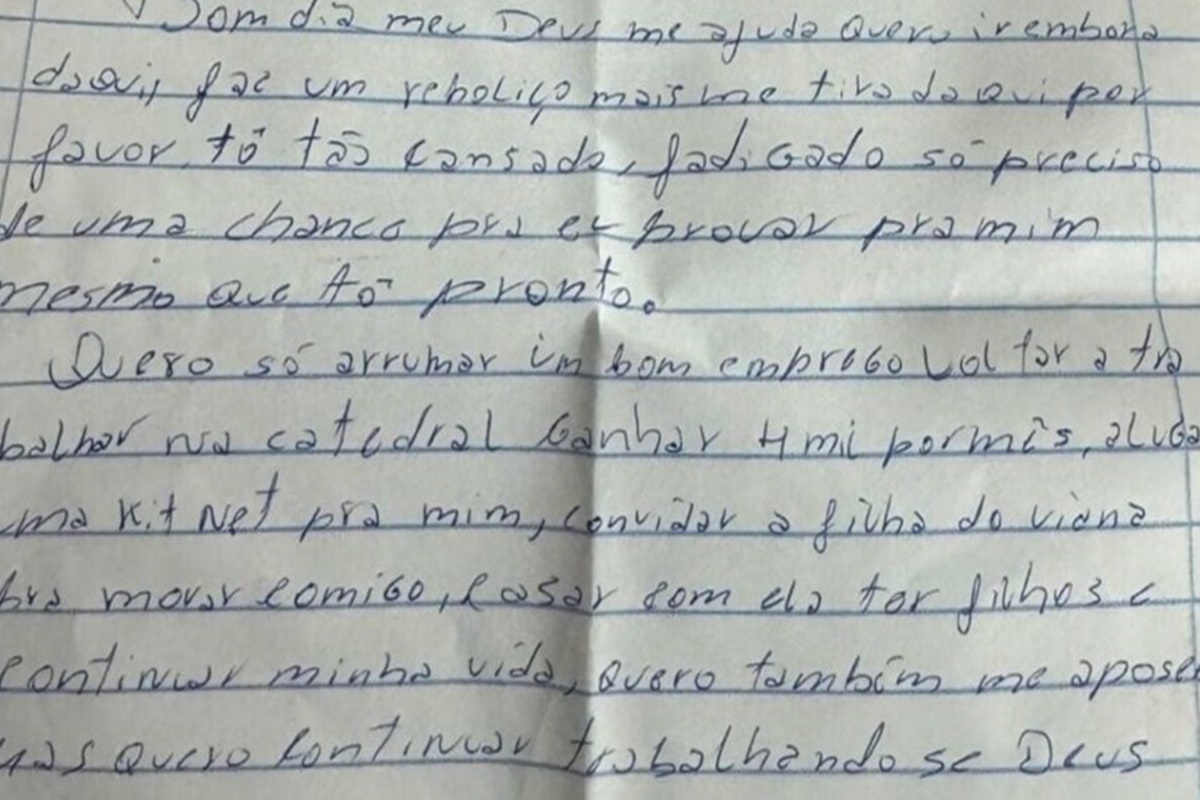 Bom dia meu Deus me ajuda quero ir embora
daqui, faz um reboliço mais me tira daqui por
favor, tô tão cansado, fadigado só preciso
de uma chance pra eu provar pra mim
mesmo que tô pronto.
Quero só arrumar um bom emprego voltar a tra
balhar na catedral Ganhar 4 mil por mês, aluga
uma kit Net pra mim, convidar a filha do viana
pra morar comigo, casar com ela ter filhos e
continuar minha vida, quero também me aposen
mas quero continuar trabalhando se Deus